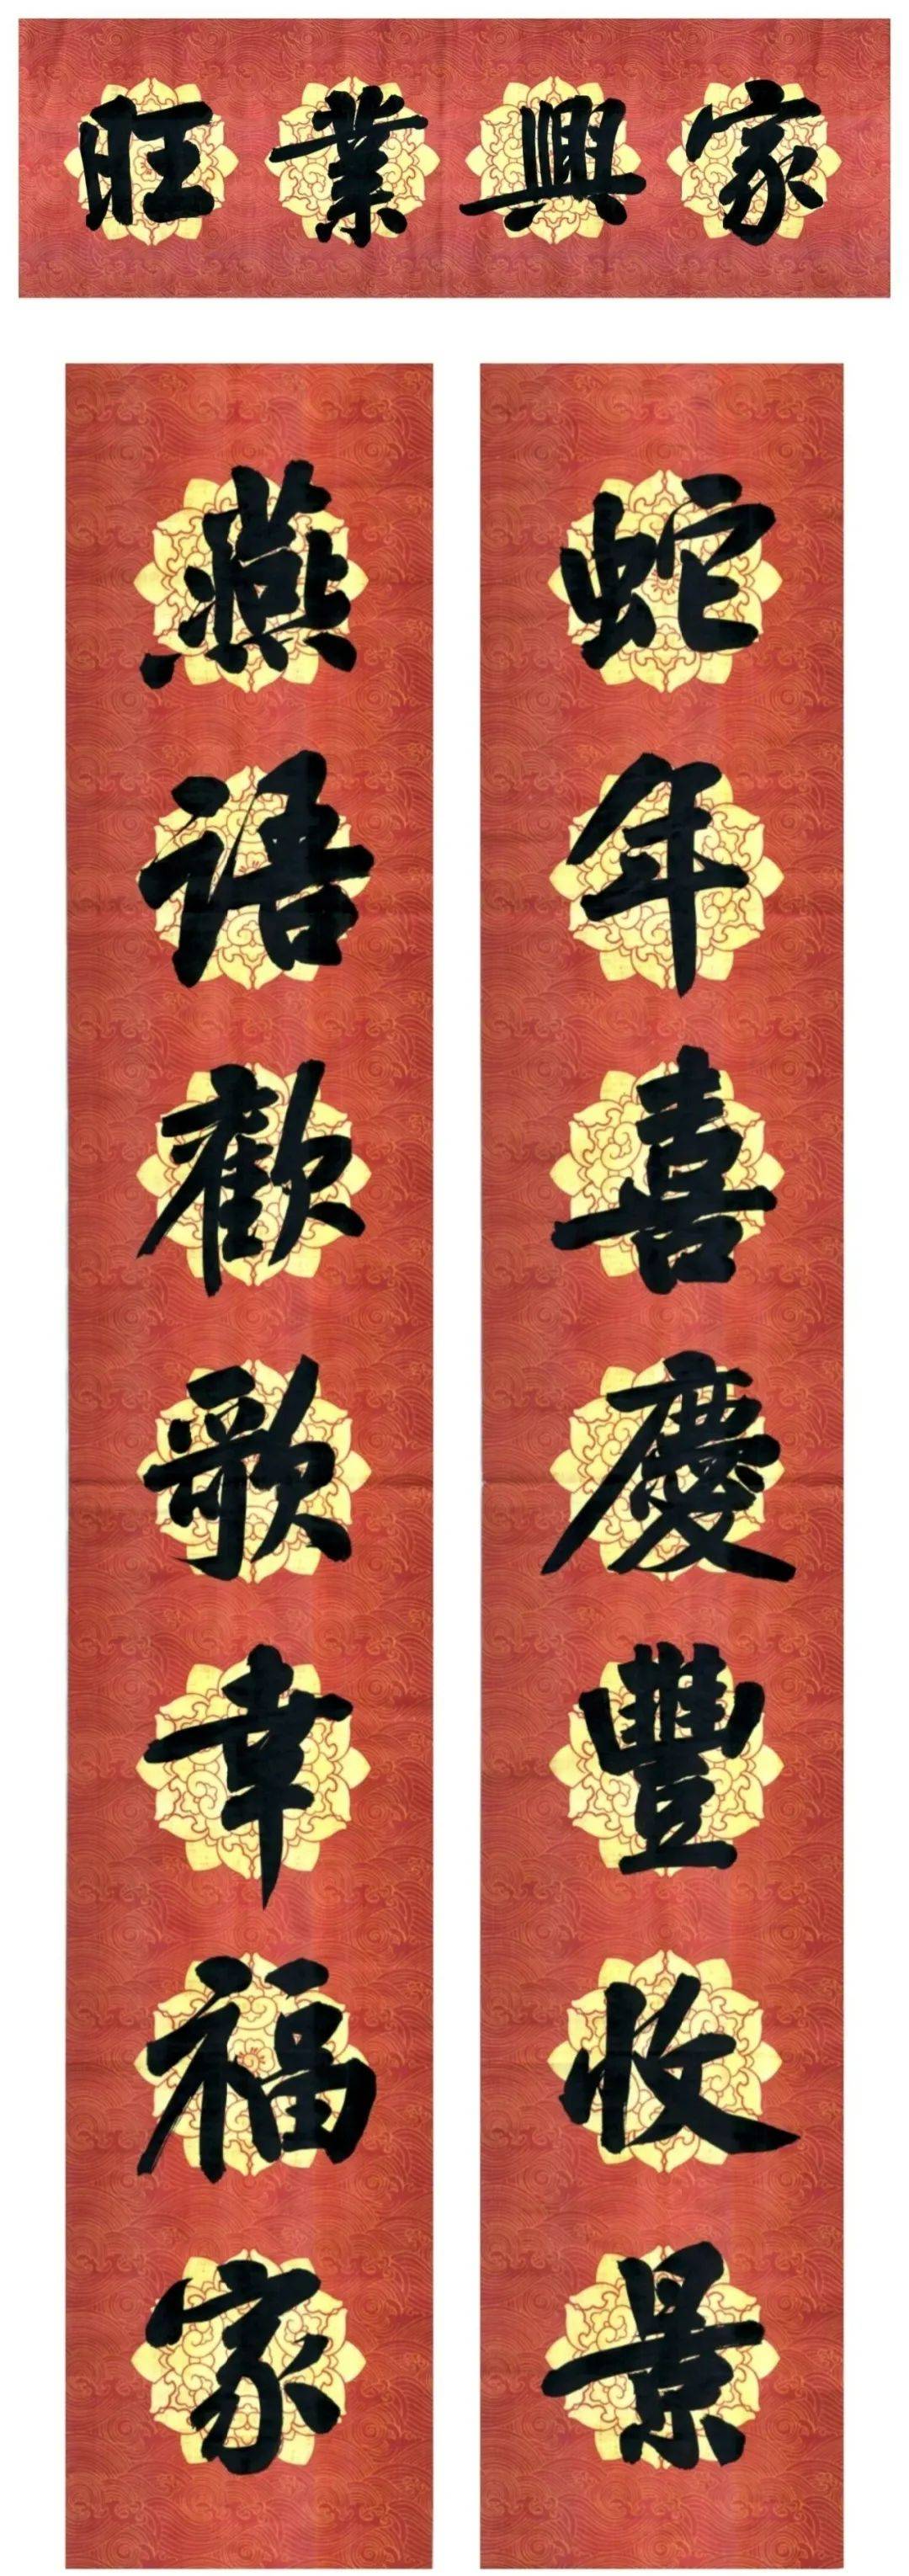 家興業旺
蛇年喜慶豐收景
燕語歡歌幸福家